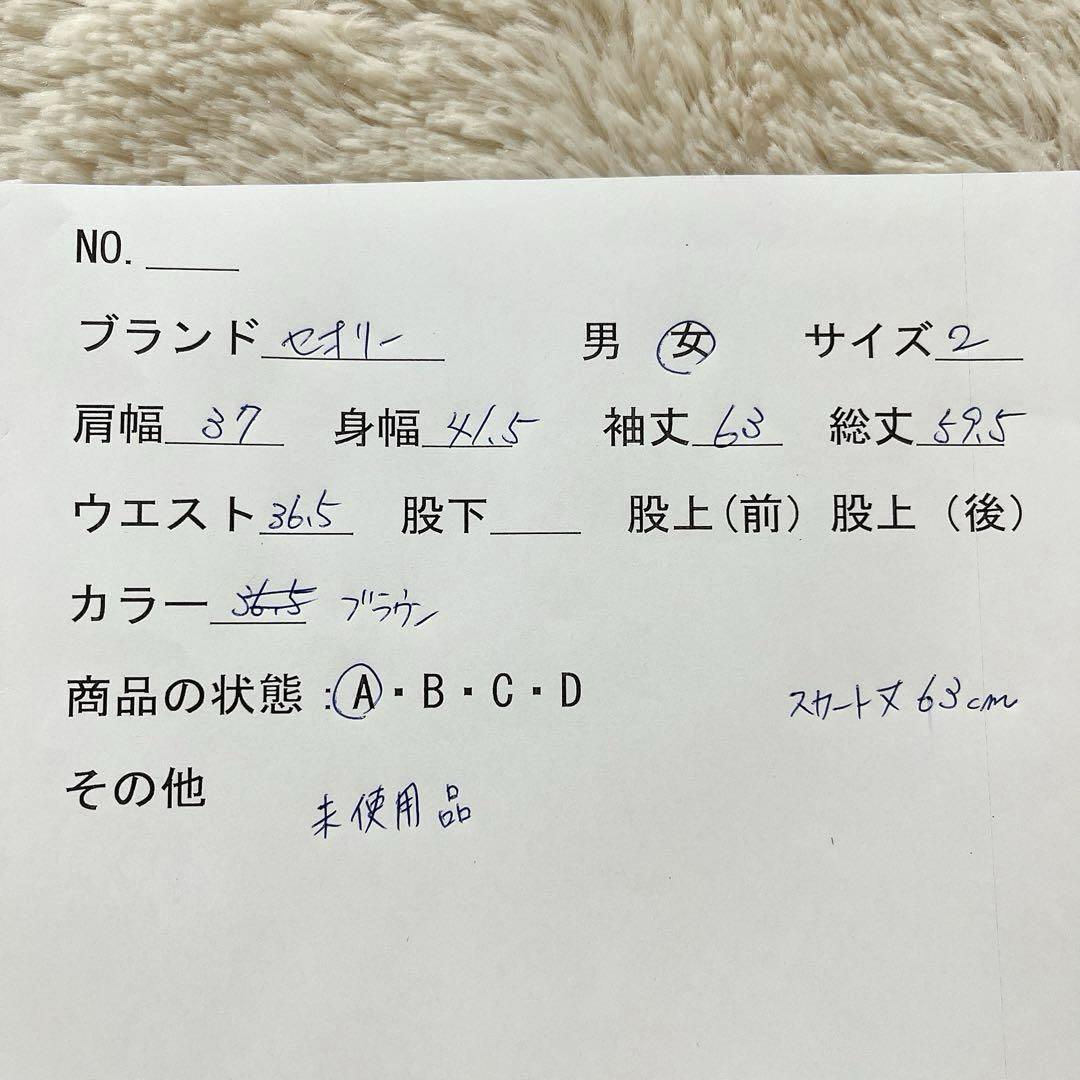 NO.
ブランド セオリー 男 女 サイズ 2
肩幅 37 身幅 41.5 袖丈 63 総丈 59.5
ウエスト 36.5 股下 股上(前) 股上(後)
カラー 36.5 ブラウン
商品の状態:A・B・C・D スカート丈 63cm
その他
未使用品